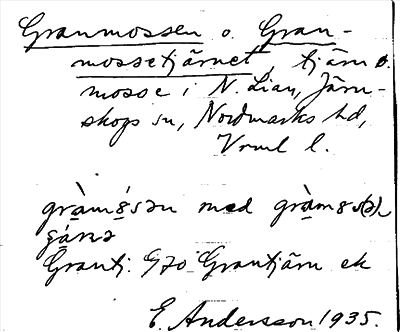 Granmossen o. Gran-
mossetjärnet, tjärn o.
mosse i N. Lian, Järn-
skogs sn, Nordmarks hd,
Vrml l.
gràms̥sən med gràms̥s(ə)-
Grantj. G70 Grantjärn ek
E. Andersson 1935.